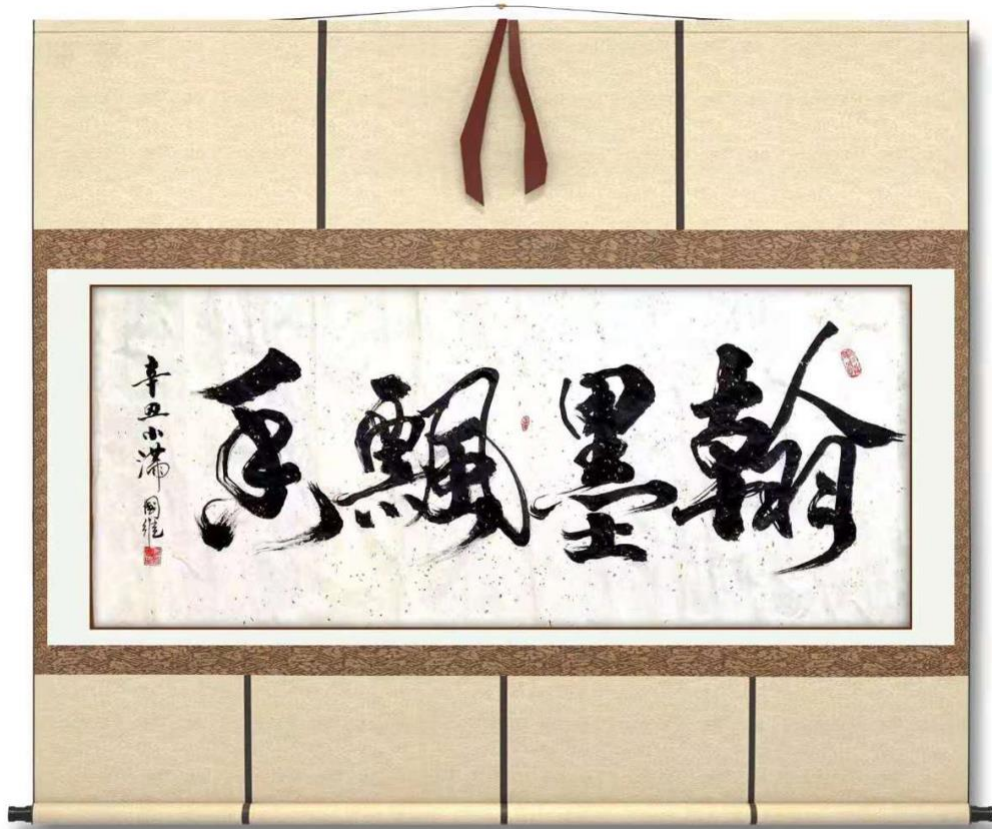 翰墨飄香
辛丑小滿 國維